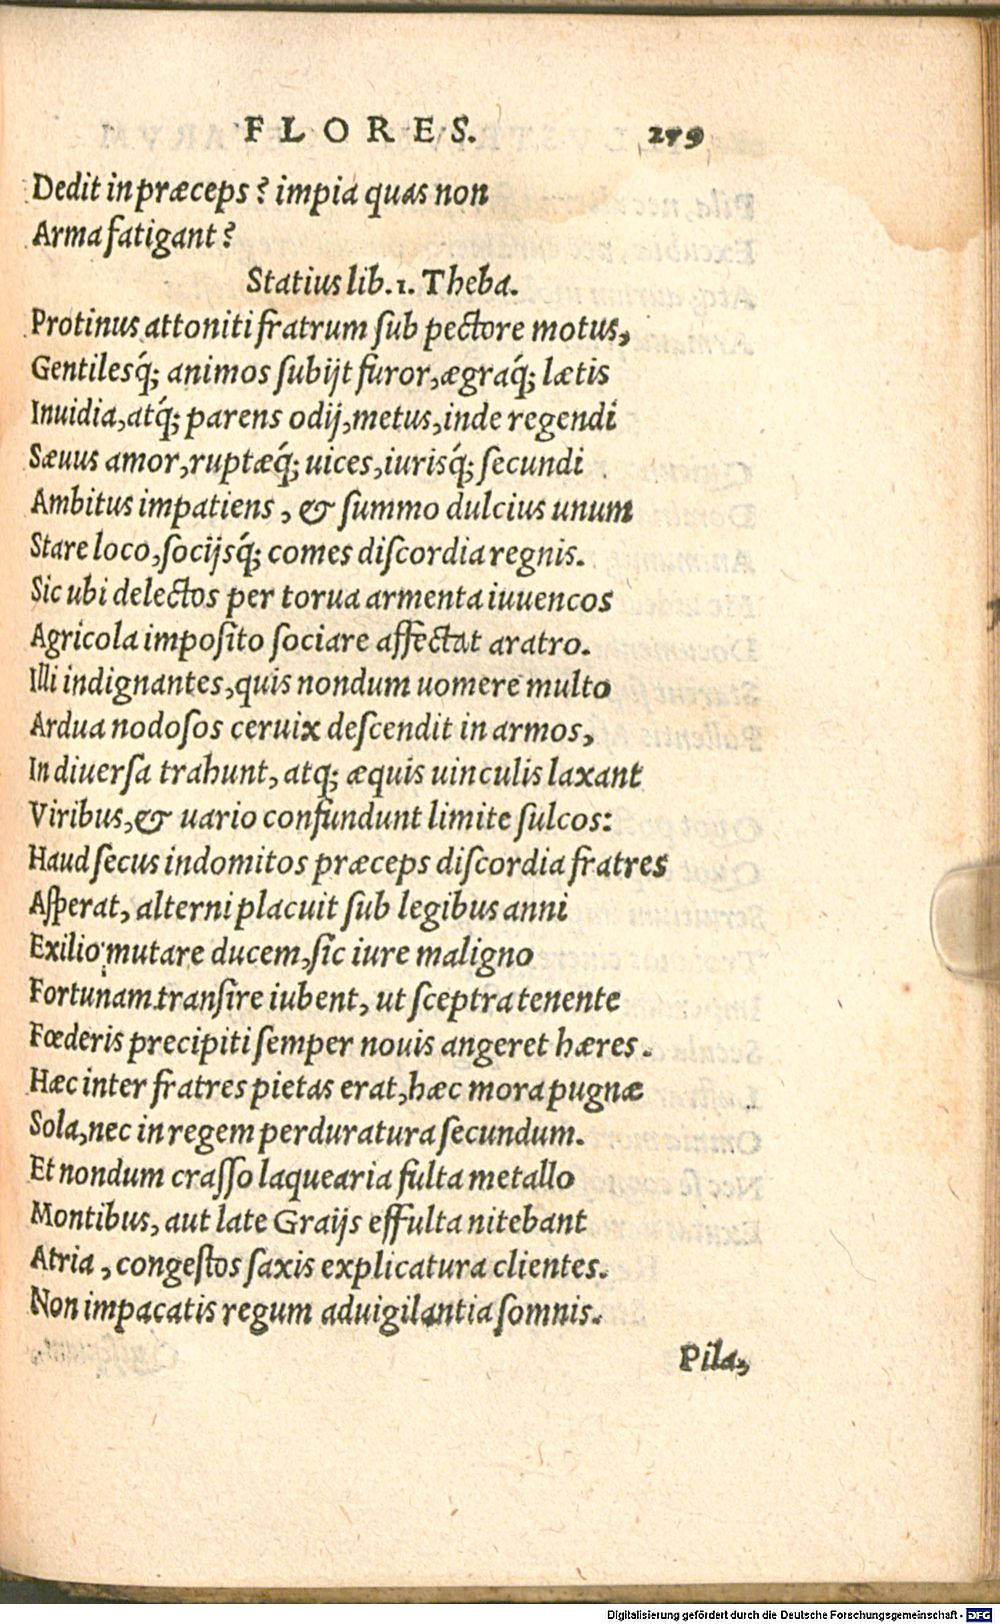 FLORES. 279
Dedit in præceps? impia quas non
Arma fatigant?
Statius lib. 1. Theba.
Protinus attoniti fratrum ſub pectore motus,
Gentilesq́; animos ſubijt furor, ægraq́; lætis
Inuidia, atq́; parens odij, metus, inde regendi
Sæuus amor, ruptæq́; uices, iurisq́; ſecundi
Ambitus impatiens, & ſummo dulcius unum
Stare loco, ſocijsq́; comes diſcordia regnis.
Sic ubi delectos per torua armenta iuuencos
Agricola impoſito ſociare affectat aratro.
Illi indignantes, quis nondum uomere multo
Ardua nodoſos ceruix deſcendit in armos,
In diuerſa trahunt, atq; æquis uinculis laxant
Viribus, & uario confundunt limite ſulcos:
Haud ſecus indomitos præceps diſcordia fratres
Aſperat, alterni placuit ſub legibus anni
Exilio mutare ducem, ſic iure maligno
Fortunam tranſire iubent, ut ſceptra tenente
Fœderis precipiti ſemper nouis angeret hæres.
Hæc inter fratres pietas erat, hæc mora pugnæ
Sola, nec in regem perduratura ſecundum.
Et nondum craſſo laquearia fulta metallo
Montibus, aut late Graijs effulta nitebant
Atria, congeſtos ſaxis explicatura clientes.
Non impacatis regum aduigilantia ſomnis.
Pila,
Digitalisierung gefördert durch die Deutsche Forschungsgemeinschaft - DFG